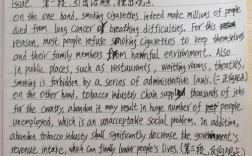 issue. 第一段,引出话题,
on the one hand, smoking cigarettes indeed make millions of people
died from lung cancer or breathing difficulties. For this
reason, most people refuse smoking cigarettes to keep themselves
and their family members from harmful environment. Also
in public places, such as restaurants, waiting rooms, theatres,
smoking is forbidden by a series of administrative laws. (二
on the other hand, tobacco industry chain supply thousands of jobs
for the country, abandon it may result in huge number of people
unemployed, which is an unacceptable social problem. In addition,
abandon tobacco industry shall significantly decrease the government's
revenue intake, which can finally lower people's lives. (